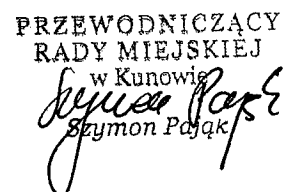 PRZEWODNICZĄCY
RADY MIEJSKIEJ
w Kunowie
Szymon Pająk